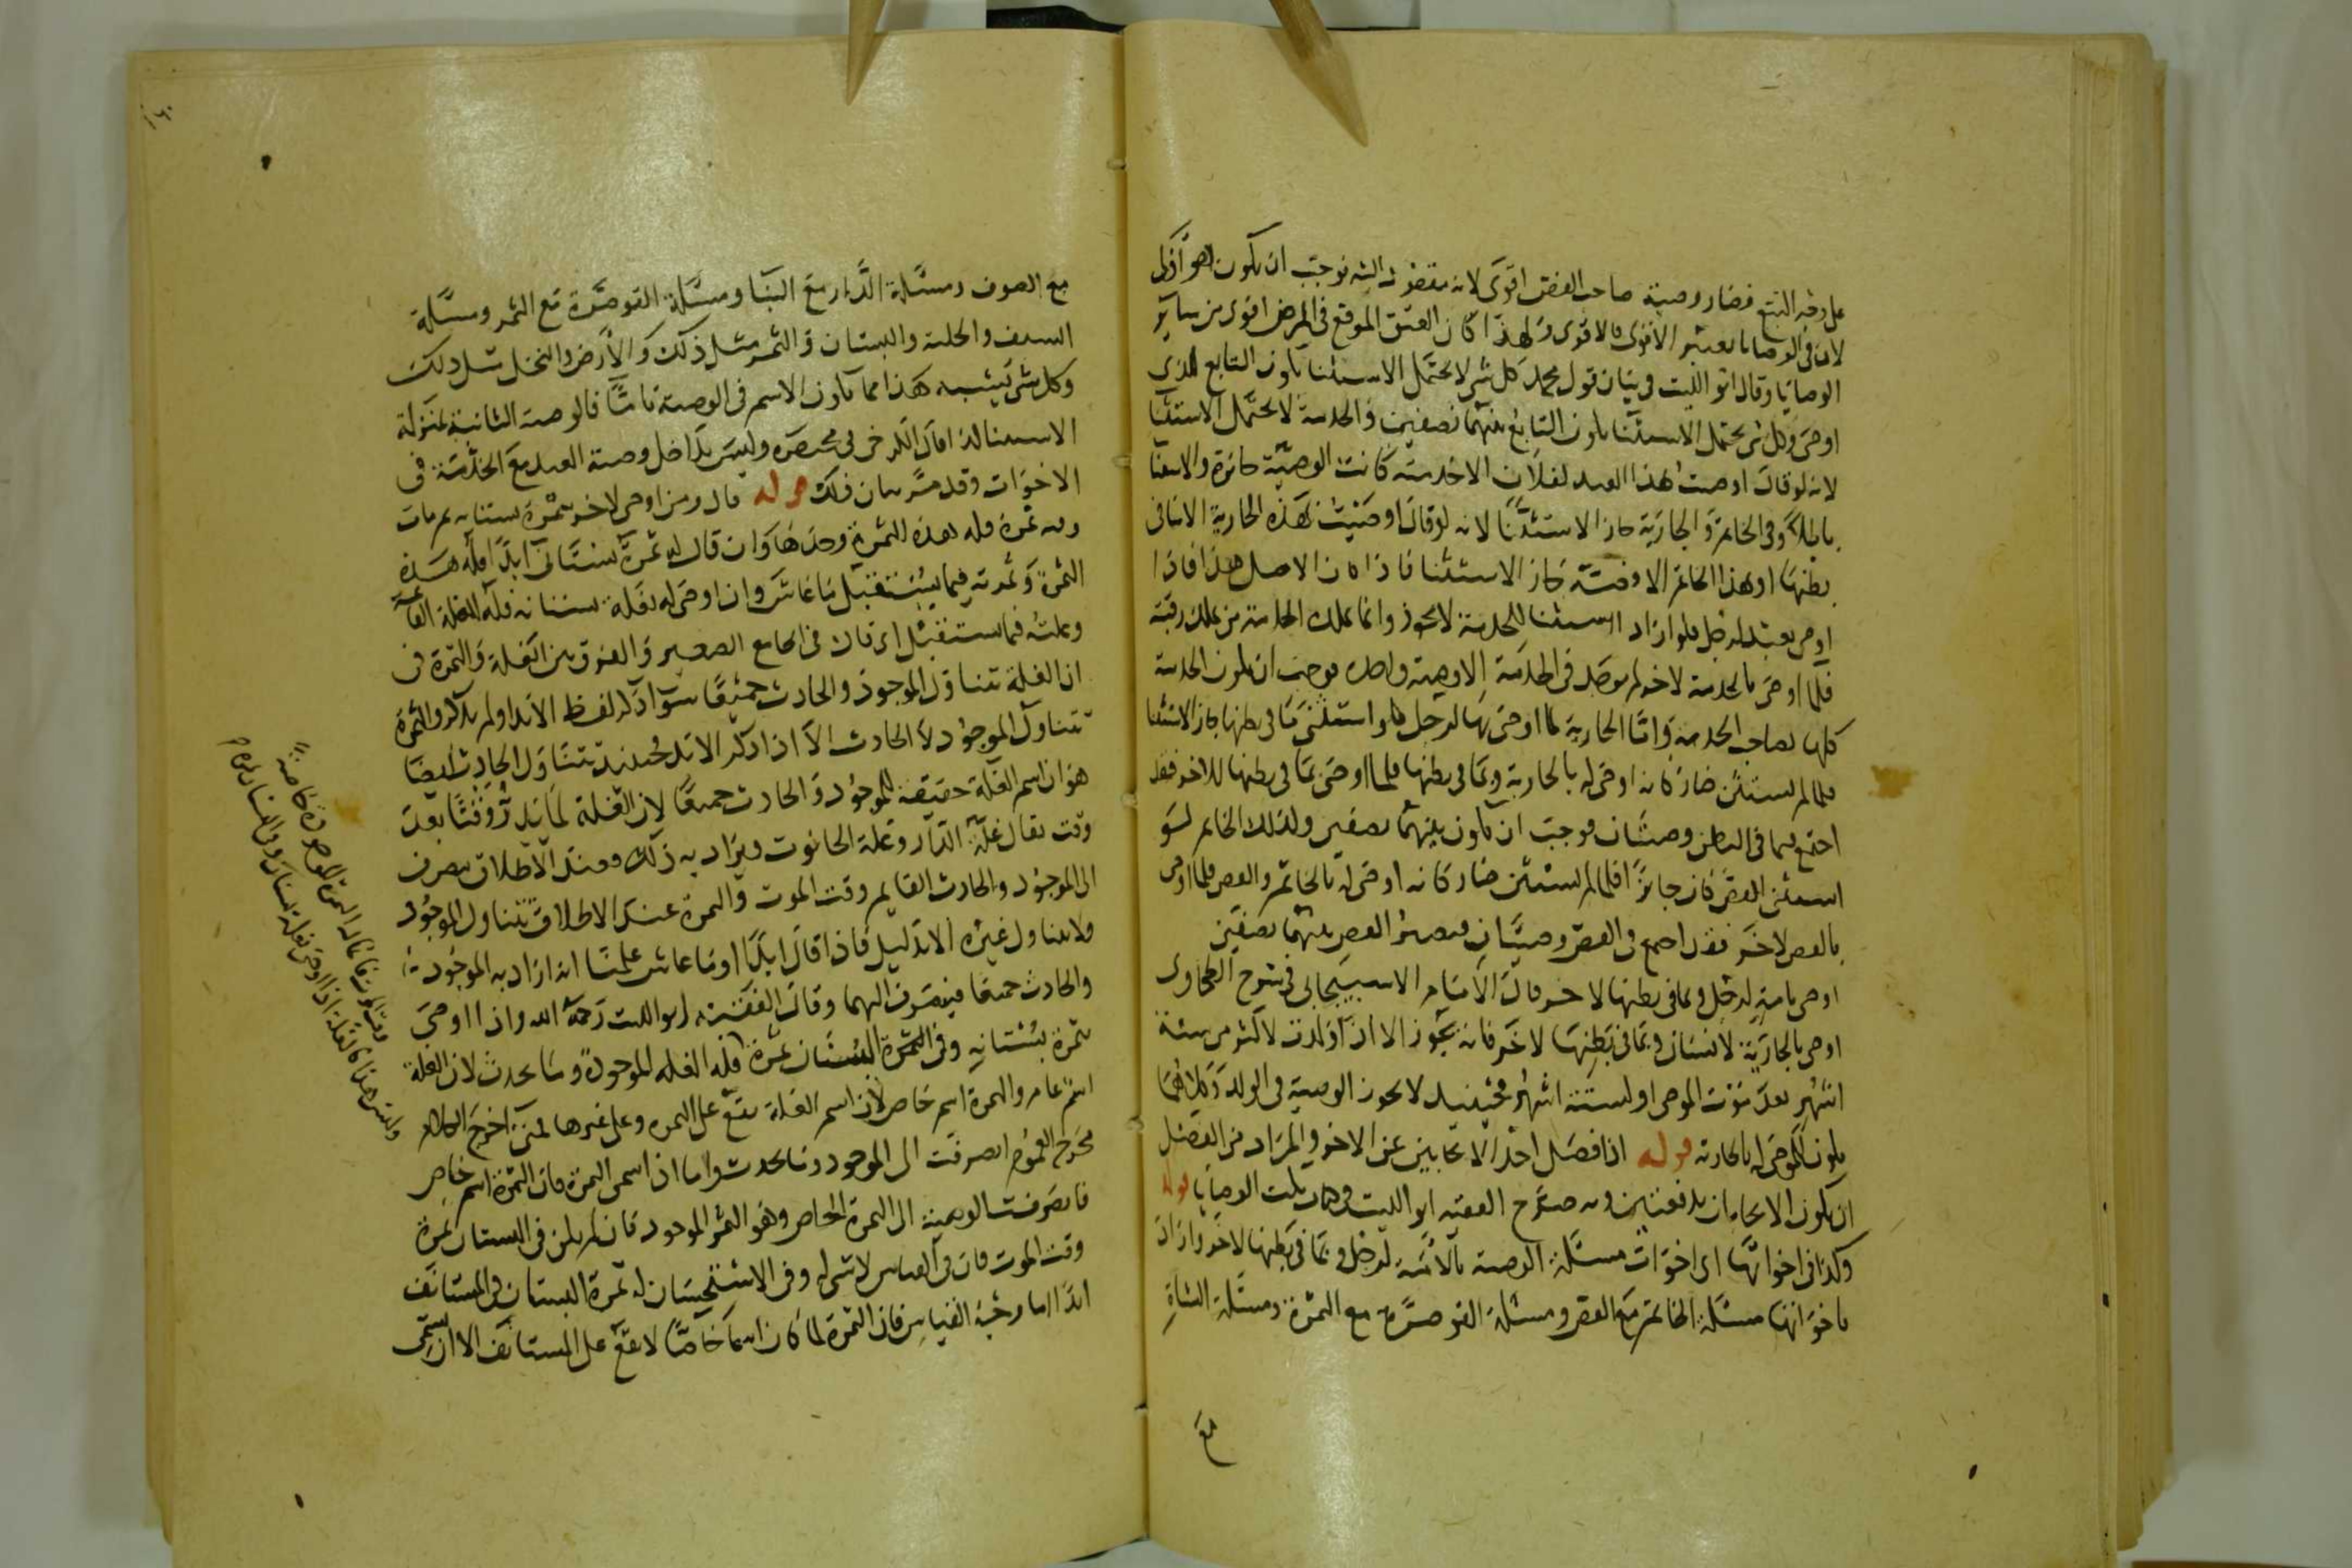 على وجه التبع فصار وصية صاحب الفص اقوى لانه مقصود اليه فوجب ان يكون هو اولى
لان في الوصايا يعتبر الاقوى فالاقوى ولهذا كان العتق الموقع في المرض اقوى من ساير
الوصايا وقال ابو الليث في بيان قول محمد كل شي لا يحتمل الاستثنا يكون التابع للذي
اوصى وكل شي يحتمل الاستثنا يكون التابع بينهما نصفين والخدمة لا تحتمل الاستثنا
لانه لو قال اوصيت بهذا العبد لفلان الا خدمته كانت الوصية جائزة والاستثنا
باطلا وفي الخاتم والجارية جاز الاستثنا لانه لو قال اوصيت بهذه الجارية الا ما في
بطنها او بهذا الخاتم الا فصه جاز الاستثنا فاذا كان الاصل هذا فاذا
اوصى بعبد لرجل فلو اراد استثنا الخدمة لا يجوز وانما يملك الخدمة من يملك رقبته
فلما اوصى بالخدمة لاخر لم يوجد في الخدمة الا وصية واحدة فوجب ان يكون الخدمة
كلها لصاحب الخدمة واما الجارية لما اوصى بها لرجل فلو استثنى ما في بطنها جاز الاستثنا
فلما لم يستثن صار كانه اوصى له بالجارية وبما في بطنها فلما اوصى بما في بطنها للاخر فقد
اجتمع فيما في البطن وصيتان فوجب ان يكون بينهما نصفين وكذلك الخاتم لو
استثنى الفص كان جائزا فلما لم يستثن صار كانه اوصى له بالخاتم والفص فلما اوصى
بالفص لاخر فقد اجتمع في الفص وصيتان فيصير الفص بينهما نصفين
اوصى بامة لرجل وبما في بطنها لاخر قال الامام الاسبيجابي في شرح الطحاوي
اوصى بالجارية لانسان وبما في بطنها لاخر فانه يجوز الا اذا ولدت لاكثر من ستة
اشهر بعد موت الموصي او لستة اشهر فحينئذ لا يجوز الوصية في الولد وكلاهما
يكون للموصى له بالجارية قوله اذا فصل احد الايجابين عن الاخر والمراد من الفصل
ان يكون الايجابان بدفعتين وبه صرح الفقيه ابو الليث في الوصايا قوله
وكذا في اخواتها اي اخوات مسئلة الوصية بالامة لرجل وبما في بطنها لاخر واراد
باخواتها مسئلة الخاتم مع الفص ومسئلة القوصرة مع الثمرة ومسئلة الشاة
مع
مع الصوف ومسئلة الدار مع البنا ومسئلة القوصرة مع الثمر ومسئلة
السيف والحلية والبستان والثمر مثل ذلك والارض والنخل مثل ذلك
وكل شي يشبه هذا مما يكون الاسم في الوصية تاما فالوصية الثانية بمنزلة
الاستثنا كذا قال الكرخي في مختصره وليس يداخل وصية العبد مع الخدمة في
الاخوات وقد مر بيان ذلك قوله قال ومن اوصى لاخر بثمرة بستانه ثم مات
وفيه ثمرة فله هذه الثمرة وحدها وان قال له ثمرة بستاني ابدا فله هذه
الثمرة وثمرته فيما يستقبل ما عاش وان اوصى له بغلة بستانه فله الغلة القائمة
وغلته فيما يستقبل اي قال في الجامع الصغير والفرق بين الغلة والثمرة في
ان الغلة تتناول الموجود والحادث جميعا سوا ذكر لفظ الابد او لم يذكر والثمرة
تتناول الموجود لا الحادث الا اذا ذكر الابد فحينئذ تتناول الحادث ايضا
هو ان اسم الغلة حقيقة للموجود والحادث جميعا لان الغلة لما تدر وقتا بعد
وقت يقال غلة الدار وغلة الحانوت ويراد به ذلك فعند الاطلاق يصرف
الى الموجود والحادث القايم وقت الموت والثمرة عند الاطلاق تتناول الموجود
ولا يتناول غيره الا بدليل فاذا قال ابدا او ما عاش علمنا انه اراد به الموجود
والحادث جميعا فينصرف اليهما وقال الفقيه ابو الليث رحمه الله واذا اوصى
بثمرة بستانه وفي البستان ثمرة فله الغلة الموجودة وما يحدث لان الغلة
اسم عام والثمرة اسم خاص لان اسم الغلة يقع على الثمرة وعلى غيرها فمتى اخرج الكلام
مخرج العموم انصرفت الى الموجود وما يحدث واما اذا سمى الثمرة فان الثمرة اسم خاص
فانصرفت الوصية الى الثمرة الخاص وهو الثمر الموجود فان لم يكن في البستان ثمرة
وقت الموت فان في القياس لا شي له وفي الاستحسان له ثمرة البستان في المستانف
ابدا اما وجه القياس فان الثمرة لما كان اسما خاصا لا يقع على المستانف الا ان يسمى